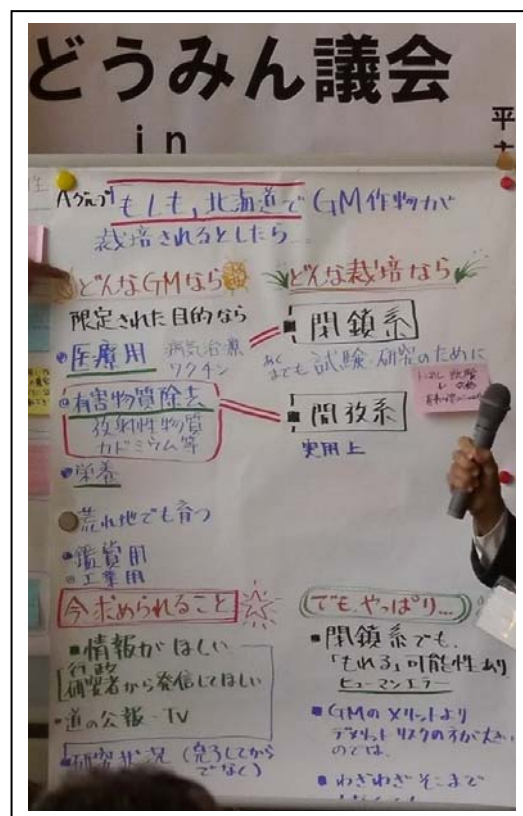 どうみん議会
in
平
Aグループ もしも、北海道でGM作物が
栽培されるとしたら…
どんなGMなら
限定された目的なら
・医療用 病気治療
ワクチン
・有害物質除去
放射性物質
カドミウム等
・栄養
荒れ地でも育つ
・鑑賞用
・工業用
どんな栽培なら
閉鎖系
あくまでも試験・研究のために
開放系
実用上
今求められること
■情報がほしい
行政
研究者から発信してほしい
・道の公報・TV
・研究状況(完了してから
でなく)
でも、やっぱり…
■閉鎖系でも、
「もれる」可能性あり
ヒューマンエラー
■GMのメリットより
デメリットリスクの方が大きい
のでは。
■わざわざそこまで